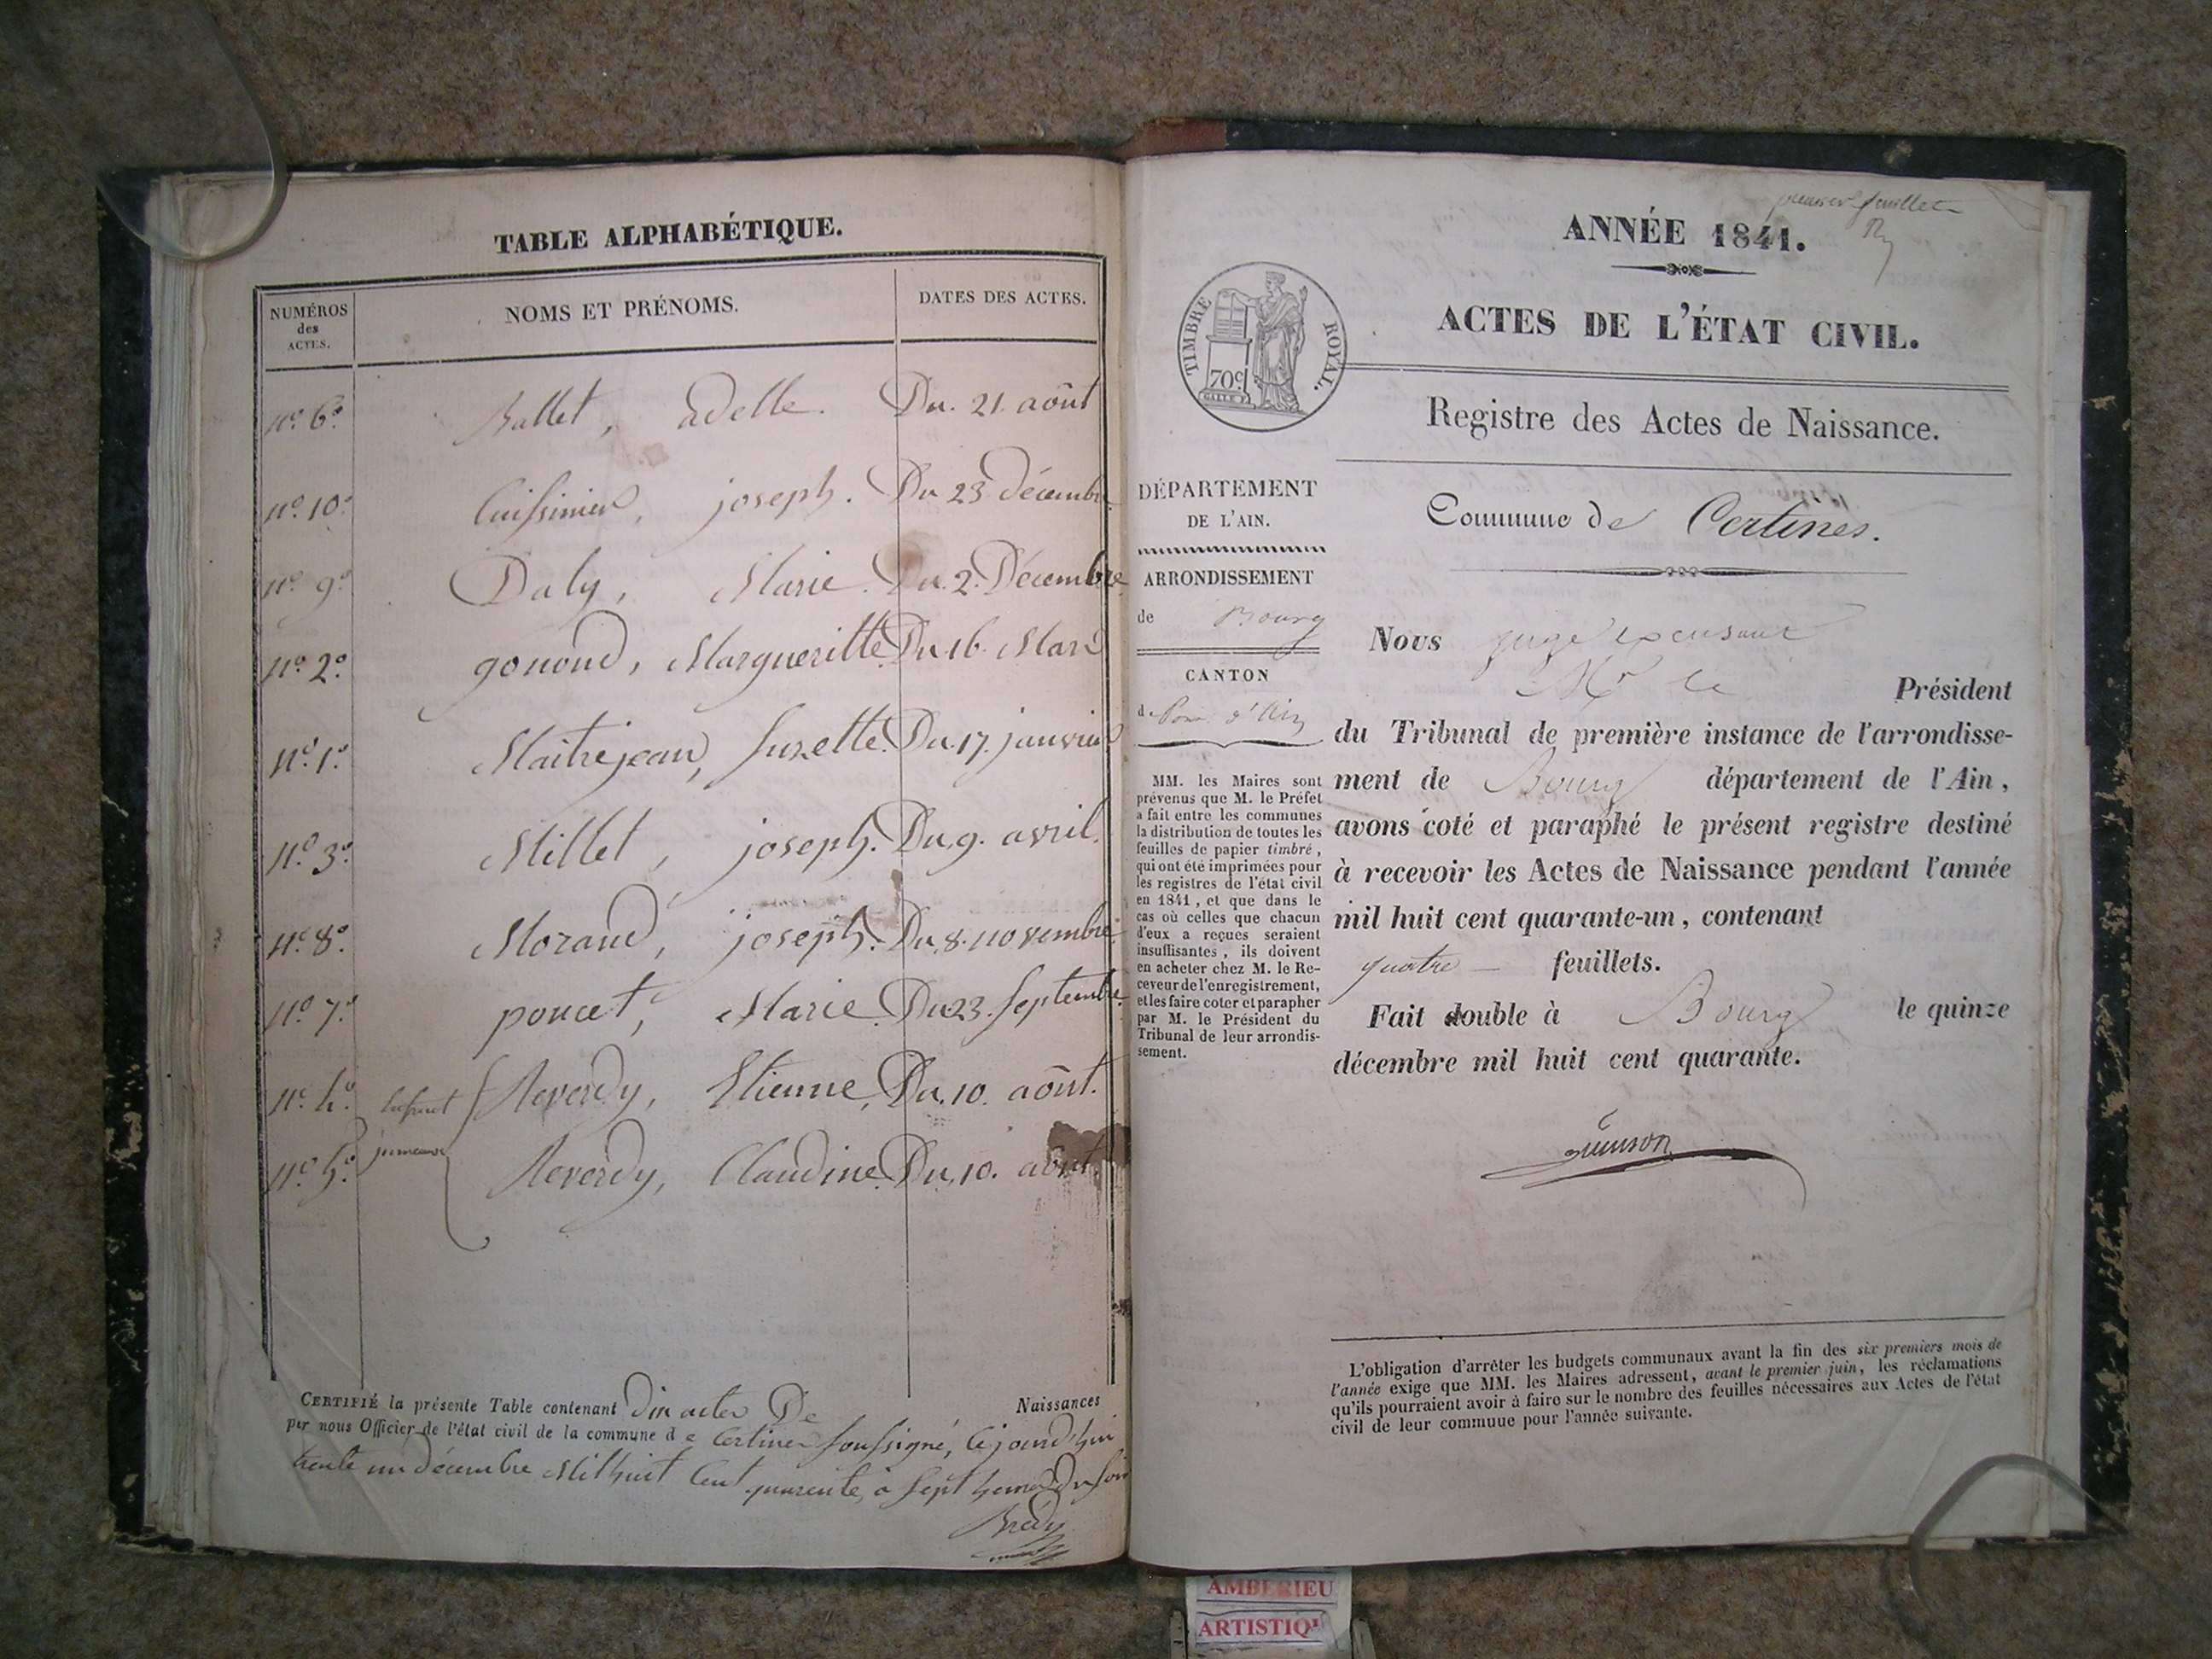 TABLE ALPHABÉTIQUE.
NUMÉROS des ACTES. NOMS ET PRÉNOMS. DATES DES ACTES.
n.º 6.º Ballet, adelle. Du. 21. août
n.º 10.º Cuisinier, joseph. Du 23 décembre
n.º 9.º Daly, Marie. Du. 2. Décembre
n.º 2.º gonond, Margueritte. Du 16. Mars
n.º 1.º Maitrejean, Suzette. Du. 17. janvier
n.º 3.º Millet, joseph. Du. 9. avril.
n.º 8.º Morand, joseph. Du. 8. novembre.
n.º 7.º poncet, Marie. Du 23. Septembre
n.º 4.º Reverdy, Etienne, Du. 10. août.
n.º 5.º jumeaux Reverdy, Claudine. Du. 10. août.
CERTIFIÉ la présente Table contenant Dix actes De Naissances
par nous Officier de l'état civil de la commune de Certines soussigné, Cejourd'hui
trente un décembre Mil huit Cent quarente, à Sept heures du soir
Brédy
premier feuillet
ANNÉE 1841.
ACTES DE L'ÉTAT CIVIL.
TIMBRE ROYAL.
70c
Registre des Actes de Naissance.
DÉPARTEMENT
DE L'AIN.
ARRONDISSEMENT
de Bourg
CANTON
de Pont d'Ain
MM. les Maires sont
prévenus que M. le Préfet
a fait entre les communes
la distribution de toutes les
feuilles de papier timbré,
qui ont été imprimées pour
les registres de l'état civil
en 1841, et que dans le
cas où celles que chacun
d'eux a reçues seraient
insuffisantes, ils doivent
en acheter chez M. le Re-
ceveur de l'enregistrement,
et les faire coter et parapher
par M. le Président du
Tribunal de leur arrondis-
sement.
Commune de Certines.
Nous juge
Mr le Président
du Tribunal de première instance de l'arrondisse-
ment de Bourg département de l'Ain,
avons coté et paraphé le présent registre destiné
à recevoir les Actes de Naissance pendant l'année
mil huit cent quarante-un, contenant
quatre feuillets.
Fait double à Bourg le quinze
décembre mil huit cent quarante.
L'obligation d'arrêter les budgets communaux avant la fin des six premiers mois de
l'année exige que MM. les Maires adressent, avant le premier juin, les réclamations
qu'ils pourraient avoir à faire sur le nombre des feuilles nécessaires aux Actes de l'état
civil de leur commune pour l'année suivante.
AMBERIEU
ARTISTIQU